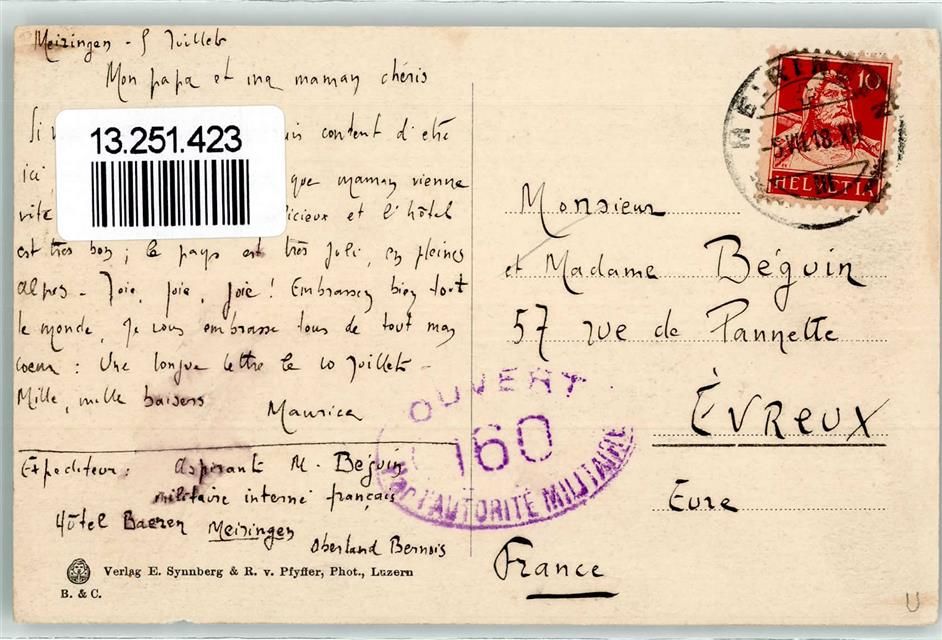 Meiringen - 5 Juillet
Mon papa et ma maman chéris
13.251.423
Si content d'être
ici que maman vienne
vite et l'hôtel
est très bon ; le pays est très joli, en pleines
alpes - Joie, joie, joie ! Embrassez bien tout
le monde, je vous embrasse tous de tout mon
coeur : Une longue lettre le 10 Juillet -
Mille, mille baisers
Maurice
Expediteur : Aspirant M. Béguin
militaire interné français
Hôtel Baeren Meiringen
Oberland Bernois
Verlag E. Synnberg & R. v. Pfyffer, Phot., Luzern
B. & C.
MEIRINGEN
-5.VII.18.XVI
10
HELVETIA
Monsieur
et Madame Béguin
57 rue de Pannette
ÉVREUX
Eure
France
OUVERT
160
par l'AUTORITÉ MILITAIRE
U